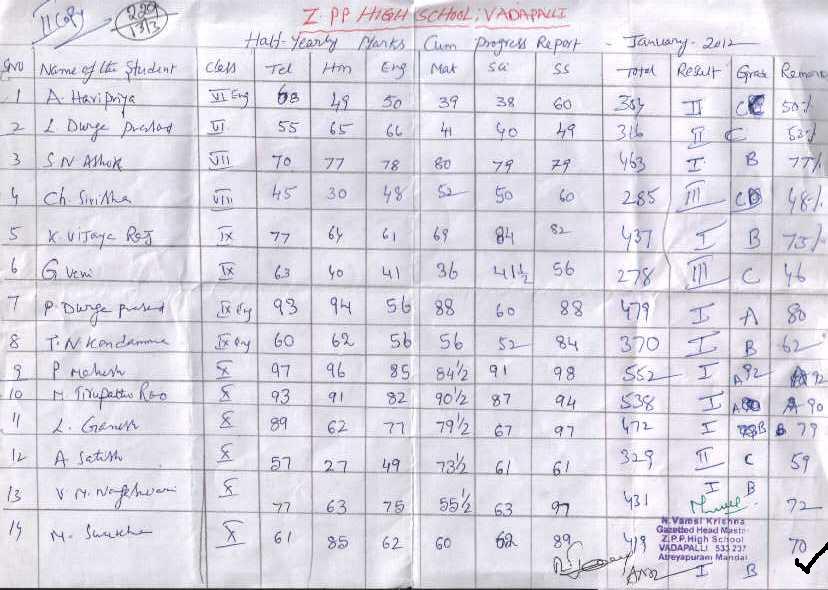 II Copy
229
13/3
Z PP HIGH SCHOOL; VADAPALLI
Half-Yearly Marks Cum Progress Report - January-2012
SNO Name of the Student Class Tel Hin Eng Mat Sci SS Total Result Grade Remarks
1 A. Haripriya VI Eng 68 49 50 39 38 60 304 II C 50%
2 L. Durga prasad VI 55 65 66 41 40 49 316 II C 53%
3 S N Ashok VII 70 77 78 80 79 79 463 I B 77%
4 Ch. Sirisha VIII 45 30 48 52 50 60 285 III C 48%
5 K. Vijaya Raj IX 77 64 61 69 84 82 437 I B 73%
6 G veni IX 63 40 41 36 41½ 56 278 III C 46
7 P. Durga prasad IX Eng 93 94 56 88 60 88 479 I A 80
8 T. N Kondamma IX Eng 60 62 56 56 52 84 370 I B 62
9 P Mahesh X 97 96 85 84½ 91 98 552 I A 92 A 92
10 M. Tirupatho Rao X 93 91 82 90½ 87 94 538 I A A-90
11 L. Ganesh X 89 62 77 79½ 67 97 472 I B B 79
12 A Satish X 57 27 49 73½ 61 61 329 II C 59
13 V M. Nageshwari X 77 63 75 55½ 63 97 431 I B 72
14 M. X 61 85 62 60 62 89 419 I B 70
N. Vamsi Krishna
Gazetted Head Mastr
Z.P.P.High School
VADAPALLI 533 237
Atreyapuram Mandal